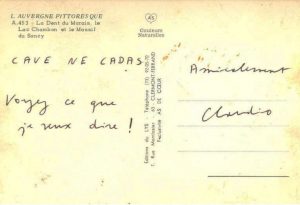 L'AUVERGNE PITTORESQUE
A.453 - La Dent du Marais, le
Lac Chambon et le Massif
du Sancy
Couleurs
Naturelles
CAVE NE CADAS
Voyez ce que
je veux dire !
Amicalement
Claudio
Editions du LYS - Téléphone
CLERMONT-FERRAND
AS DE CŒUR